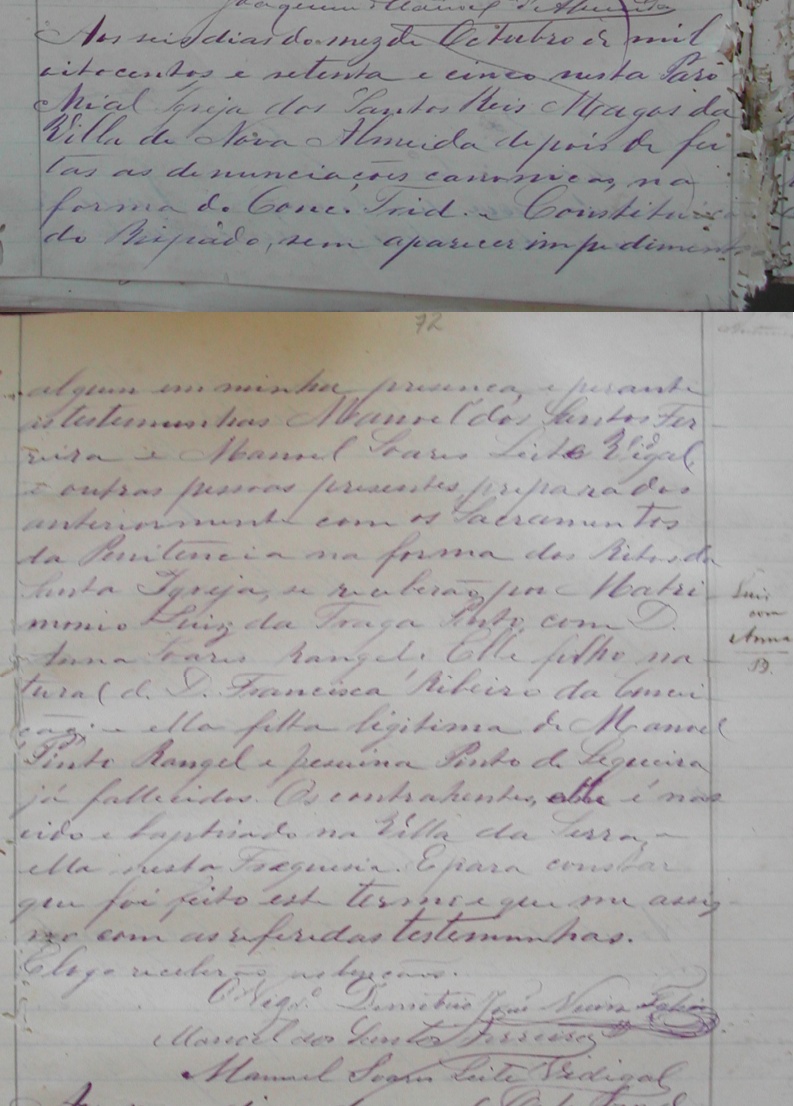 Joaquim Manoel d'Almeida
Aos seis dias do mez de Octubro de mil
oitocentos e setenta e cinco nesta Paro
chial Igreja dos Santos Reis Magos da
Villa de Nova Almeida depois de fei
tas as denunciações canonicas, na
forma do Conc. Trid. e Constituição
do Bispado, sem aparecer impedimento
72
algum em minha presença, e perante
as testemunhas Manoel dos Santos Fer
reira e Manoel Soares Leite Vidigal
e outras pessoas presentes, preparados
anteriormente com os Sacramentos
da Penitencia na forma dos Ritos da
Santa Igreja, se receberão por Matri
monio Luiz da Fraga Pinto, com D.
Anna Soares Rangel. Elle filho na
tural de D. Francisca Ribeiro da Concei
ção; e ella filha legitima de Manoel
Pinto Rangel e Pinto de Sequeira
já fallecidos. Os contrahentes, elle é nas
cido e baptisado na Villa da Serra, e
ella nesta Freguesia. E para constar
que foi feito este termo e que me assig
no com as referidas testemunhas.
E logo receberão as bençãos.
O Vigº. Demetrio José Neves
Manoel dos Santos Ferreira
Manoel Soares Leite Vidigal
Luiz
com
Anna